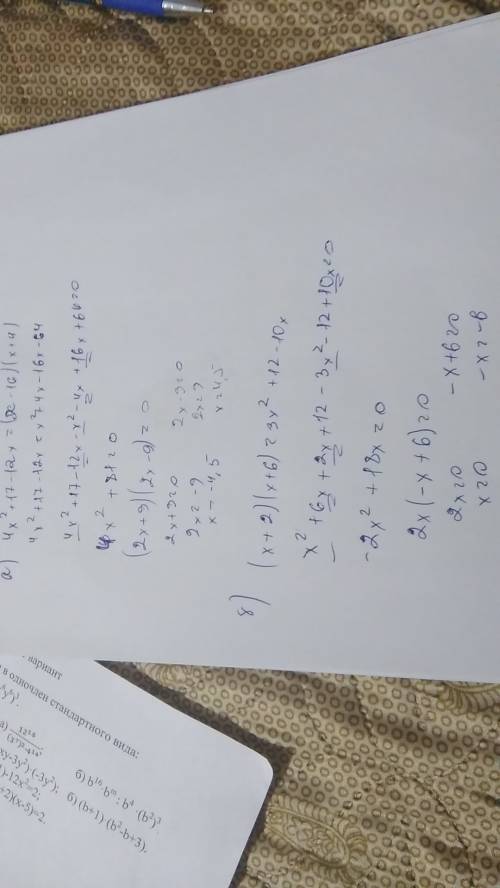 а) 4x²+17-12x=(x-16)(x+4)
4x²+17-12x=x²+4x-16x-64
4x²+17-12x-x²-4x+16x+64=0
x²+81=0
(2x+9)(2x-9)=0
2x+9=0 2x-9=0
2x=-9 2x=9
x=-4,5 x=4,5
б) (x+2)(x+6)=3x²+12-10x
x²+6x+2x+12-3x²-12+10x=0
-2x²+18x=0
2x(-x+6)=0
2x=0 -x+6=0
x=0 -x=-6
вариант
в одночлен стандартного вида:
б) b¹⁶·bᵐ:b⁴·(b²)³
xy-3y²)·(-3y²); б) (b+1)·(b²-b+3).
)-12x²=2;
+2)(x-5)=2.